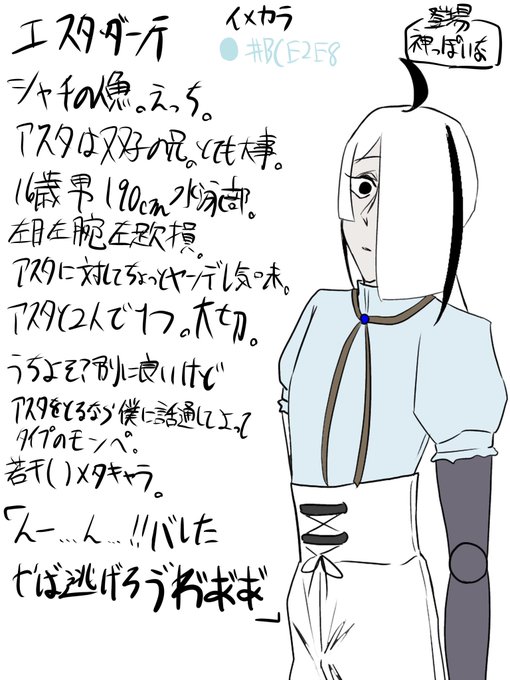 エスタ・ダーテ
イメカラ
#BCE2E8
登場
神っぽいな
シャチの人魚。えっち。
アスタは双子の兄。とても大事。
16歳 男 190cm 水泳部。
左目左腕左足欠損。
アスタに対してちょっとヤンデレ気味。
アスタと2人で1つ。大切。
うちよそ?別に良いけど
アスタをとるなら僕に話通してよって
タイプのモンペ。
若干()メタキャラ。
「んー…ん…!!バレた
やば逃げろ